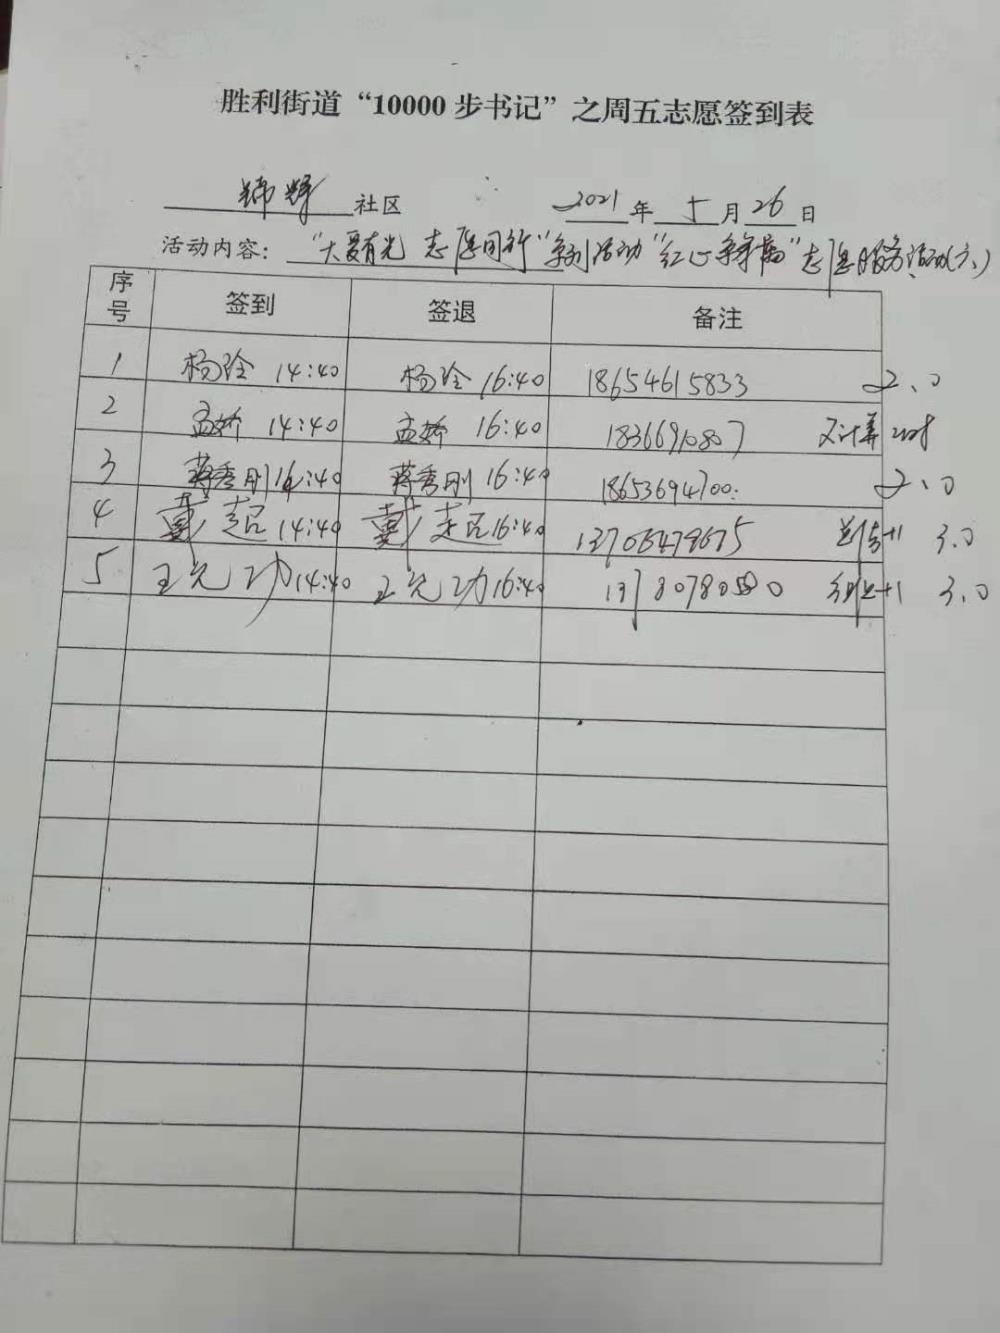 胜利街道“10000 步书记”之周五志愿签到表
锦辉 社区 2021 年 5 月 26 日
活动内容： “大爱有光 志愿同行”系列活动“红心”志愿服务活动(六)
序号 签到 签退 备注
1 杨玲 14:40 杨玲 16:40 18654615833 2.0
2 孟娇 14:40 孟娇 16:40 18366910807 不计算
3 蒋秀刚 14:40 蒋秀刚 16:40 18653694700 2.0
4 戴超 14:40 戴超 16:40 13706479675 +1 3.0
5 王允功 14:40 王允功 16:40 +1 3.0